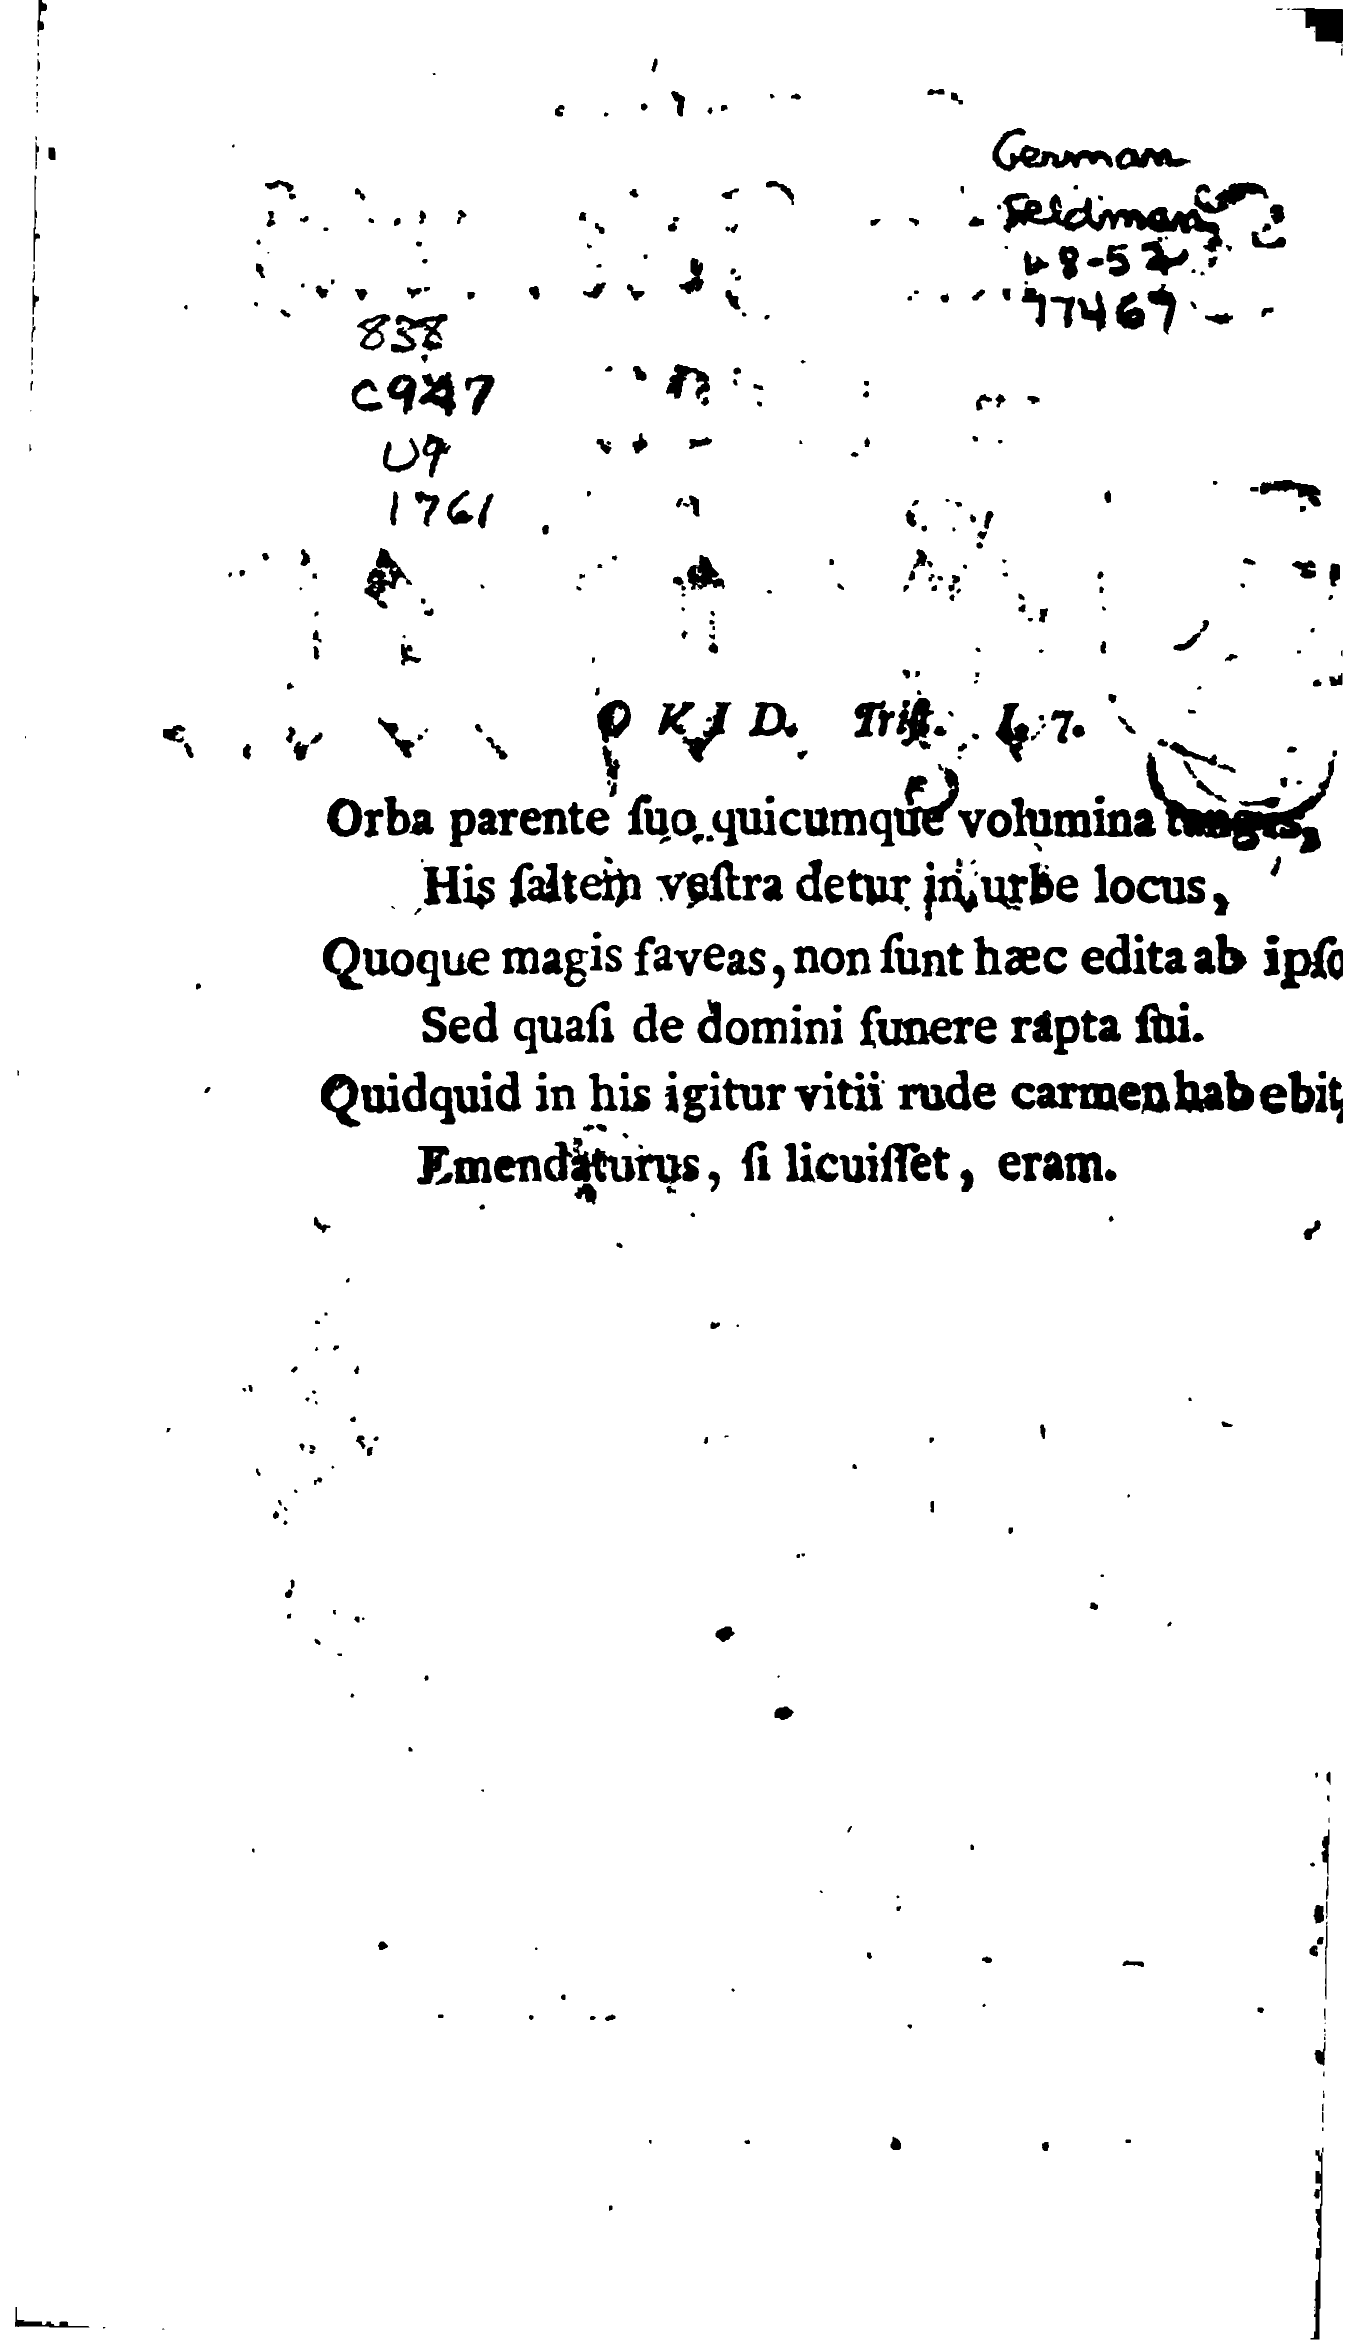 German
Feldman
8-52
77467
838
C947
U9
1761
OVID. Triſt. I. 7.
Orba parente ſuo quicumque volumina tangis,
His ſaltem veſtra detur in urbe locus,
Quoque magis faveas, non ſunt hæc edita ab ipſo
Sed quaſi de domini funere rapta ſui.
Quidquid in his igitur vitii rude carmen habebit,
Emendaturus, ſi licuiſſet, eram.